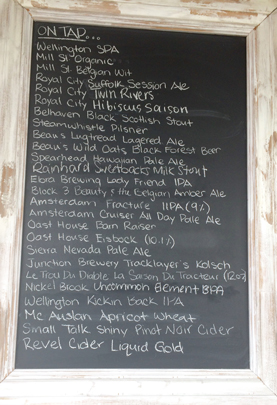 ON TAP...
Wellington SPA
Mill St Organic
Mill St. Belgian Wit
Royal City Suffolk Session Ale
Royal City Twin Rivers
Royal City Hibiscus Saison
Belhaven Black Scottish Stout
Steamwhistle Pilsner
Beau's Lugtread Lagered Ale
Beau's Wild Oats Black Forest Beer
Spearhead Hawaiian Pale Ale
Rainhard Sweetbacks Milk Stout
Elora Brewing Lady Friend IPA
Block 3 Beauty & the Belgian Amber Ale
Amsterdam Fracture IIPA (9%)
Amsterdam Cruiser All Day Pale Ale
Oast House Barn Raiser
Oast House Eisbock (10.1%)
Sierra Nevada Pale Ale
Junction Brewery Tracklayer's Kolsch
Le Trou Du Diable La Saison Du Tracteur
Nickel Brook Uncommon Element BPA
Wellington Kickin Back
Mc Auslan Apricot Wheat
Small Talk Shiny Pinot Noir Cider
Revel Cider Liquid Gold